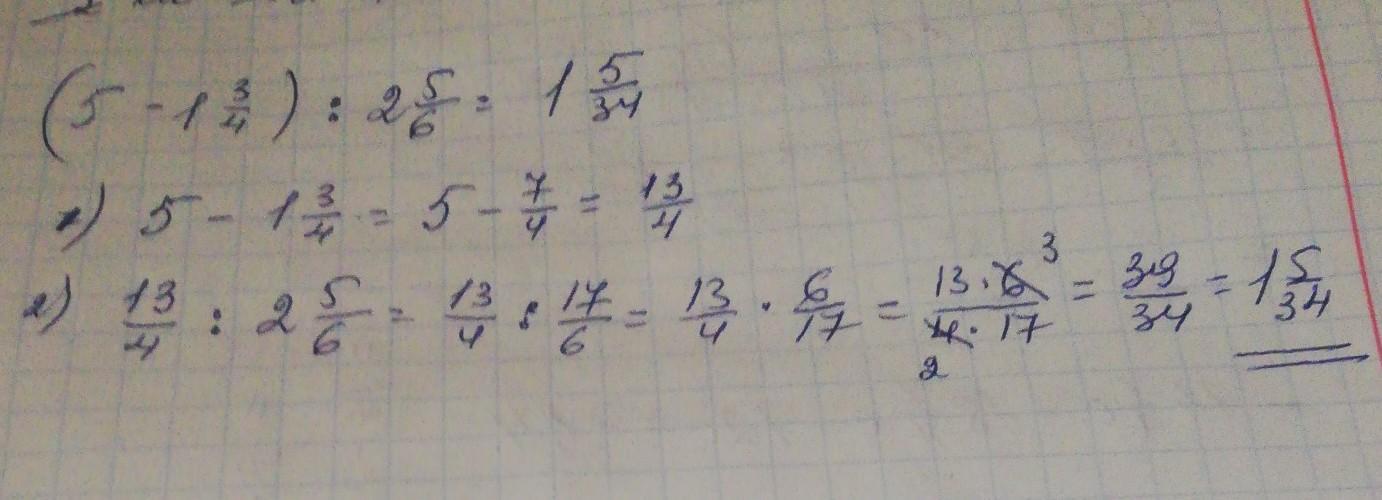 (5 - 1 3/4) : 2 5/6 = 1 5/34
1) 5 - 1 3/4 = 5 - 7/4 = 13/4
2) 13/4 : 2 5/6 = 13/4 : 17/6 = 13/4 · 6/17 = 13 · 6 3 / 4 2 · 17 = 39/34 = 1 5/34